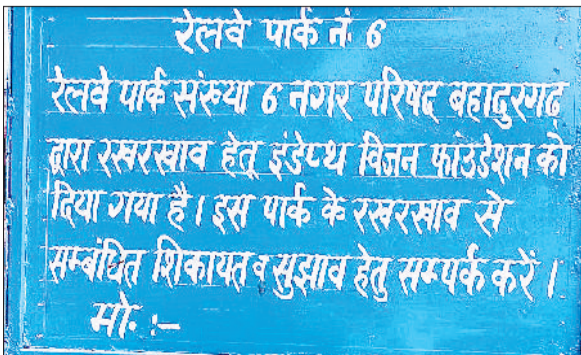 रेलवे पार्क नं. 6
रेलवे पार्क संख्या 6 नगर परिषद बहादुरगढ़
द्वारा रखरखाव हेतू इंडेप्थ विजन फाउंडेशन को
दिया गया है। इस पार्क के रखरखाव से
सम्बंधित शिकायत व सुझाव हेतु सम्पर्क करें।
मो. :-